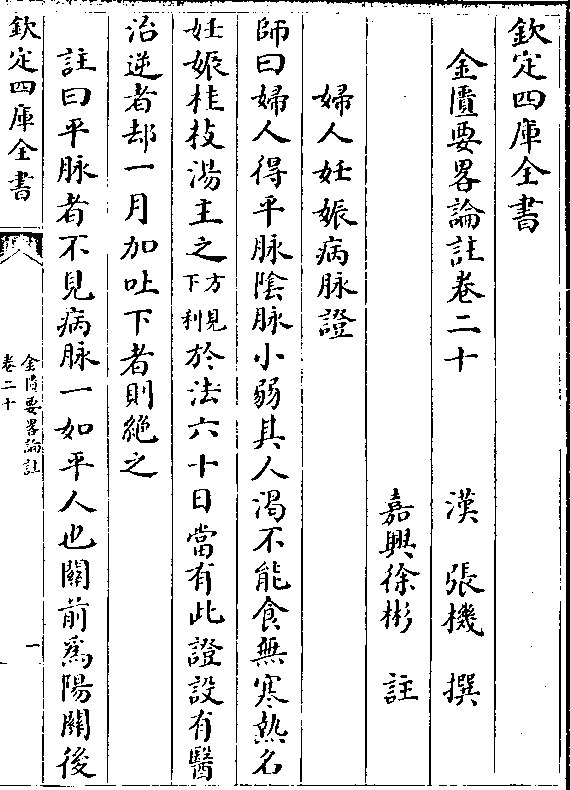 欽定四庫全書
金匱要畧論註卷二十
漢 張機 撰
嘉興徐彬 註
婦人妊娠病脉證
師曰婦人得平脉陰脉小弱其人渴不能食無寒熱名
妊娠桂枝湯主之方見下利於法六十日當有此證設有醫
治逆者却一月加吐下者則絶之
註曰平脉者不見病脉一如平人也關前為陽關後
欽定四庫全書
金匱要畧論註
卷二十
一